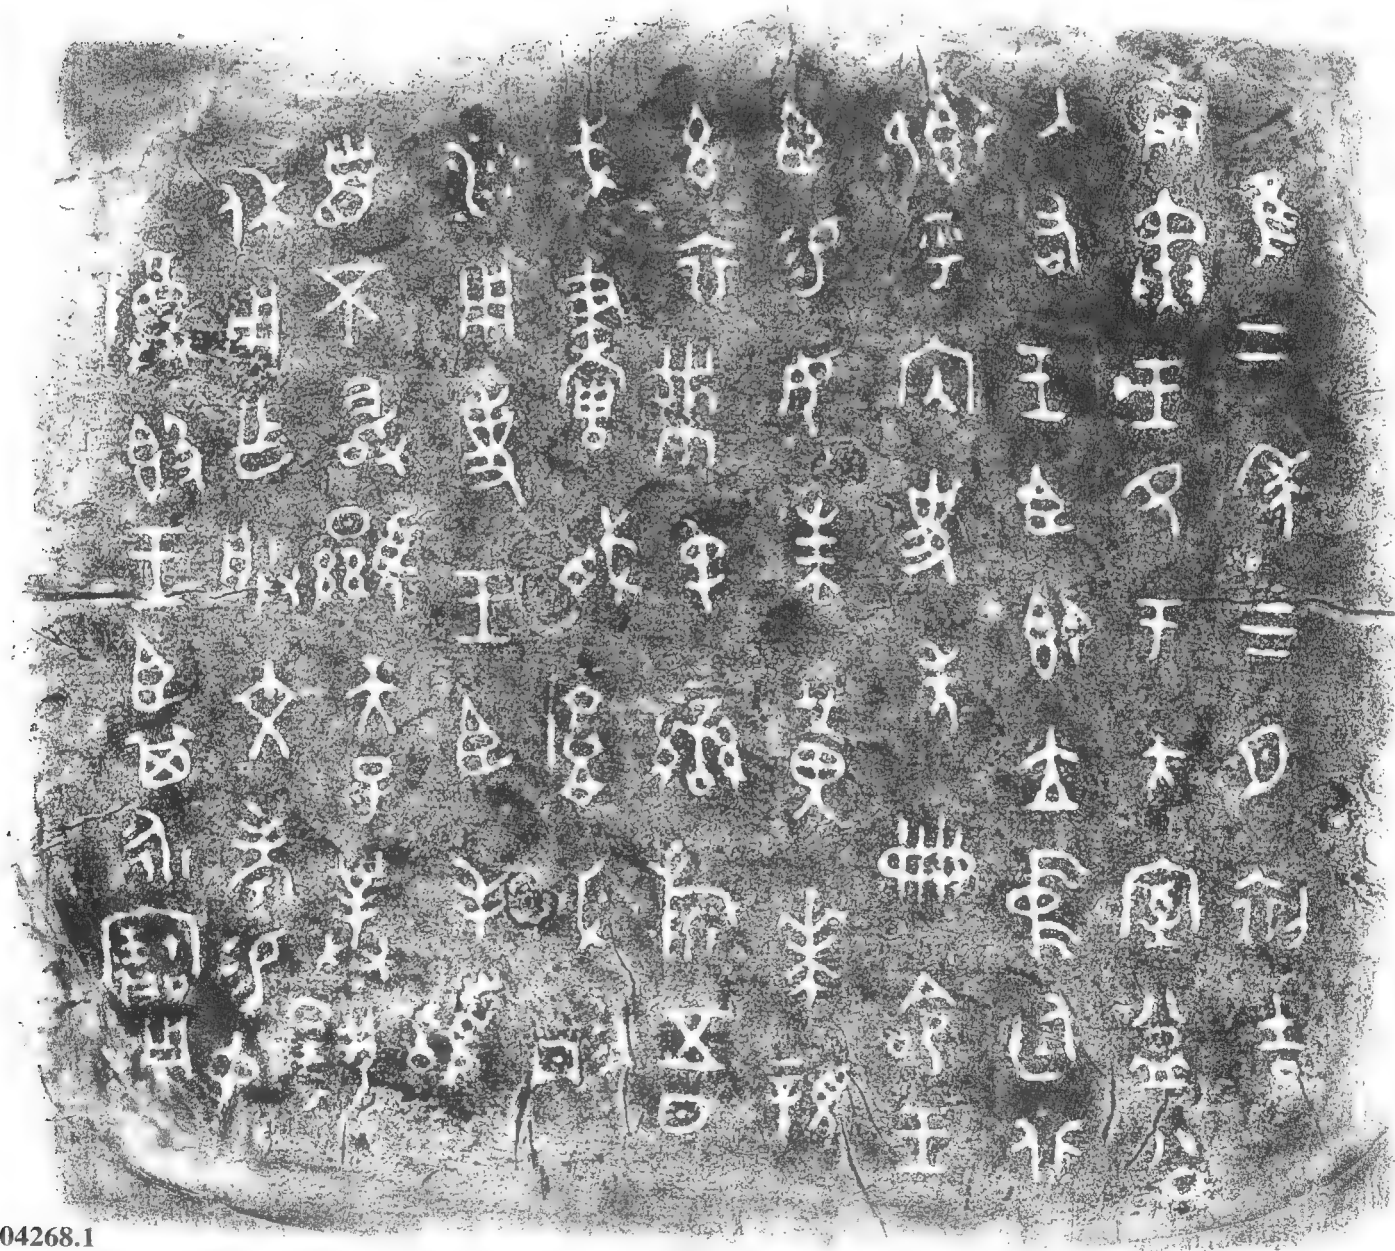 隹二年三月初吉
庚寅王各于大室益公
入右王臣即立中廷北
鄉乎內史冊命王
臣易女朱黃親
玄衣黹屯䜌旂五日
戈畫厚必彤
沙用事王臣拜稽
首不敢顯天子對揚
休用乍朕文考易中
尊簋王臣其永寶用
04268.1